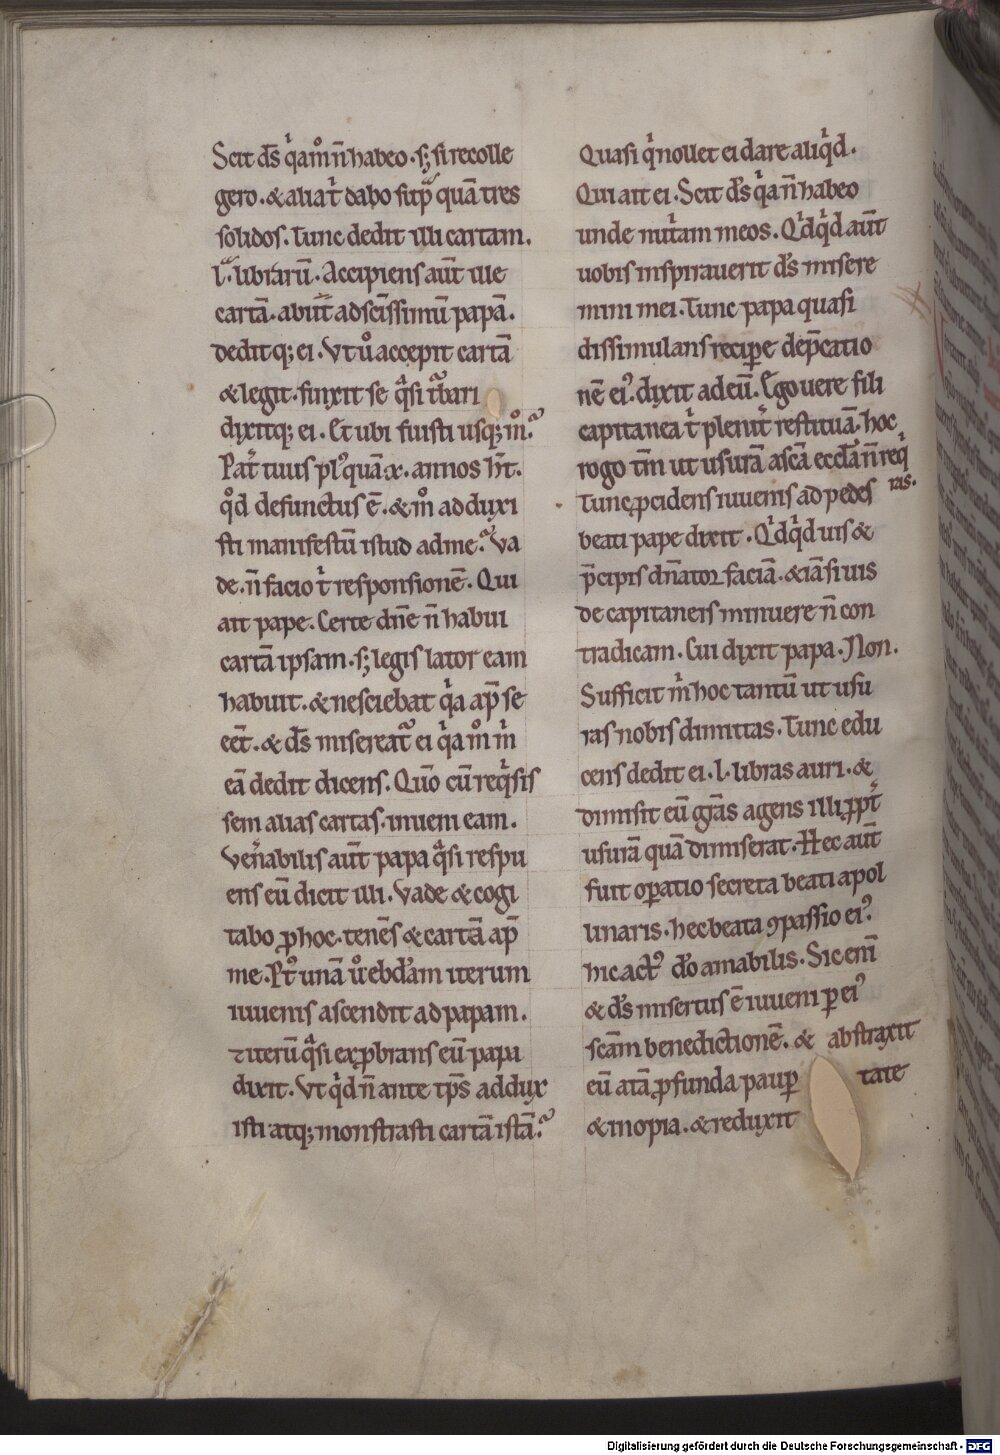 Scit ds̄ qͥa mͦ n̄ habeo. sꝫ si recolle
gero. & alia t̾ dabo sup̱ quā tres
solidos. Tunc dedit illi cartam.
l. librarū. Accipiens aūt ille
cartā. abiit ad sc̄issimū papā.
dedit qꝫ ei. Vt ů accepit cartā
& legit. finxit se qͣsi tͨbari
dixitqꝫ ei. Et ubi fuisti usqꝫ mͦ.
Pat̾ tuus plꝰ quā x. annos ht̄.
qͦd defunctus ē. & mͦ adduxi
sti manifestū istud ad me. Va
de. n̄ facio t̾ responsionē. Qui
ait pape. Certe dn̄e n̄ habui
cartā ipsam. sꝫ legis lator eam
habuit. & nesciebat qͥa ap̄ se
eēt. & ds̄ misereat᷑ ei qͥa mͦ mͥ
eā dedit dicens. Quō cū reqͥsis
sem alias cartas. inueni eam.
Ven̾abilis aūt papa qͣsi respu
ens eū dicit illi. Vade & cogi
tabo ꝓ hoc. tenēs & cartā ap̄
me. Pꝰt unā ů ebdam̄ iterum
iuuenis ascendit ad papam.
⁊ iterū qͣsi exꝓbrans eū papa
dixit. Vt qͥd n̄ ante tp̄s addux
isti atqꝫ monstrasti cartā istā.
Quasi qͥ nollet ei dare aliqͥd.
Qui ait ei. Scit ds̄ qͥa n̄ habeo
unde nut̾am meos. Qͥdqͥd aūt
uobis inspirauerit ds̄ misere
mini mei. Tunc papa quasi
dissimulans recip̱e dep̄catio
nē eiꝰ. dixit ad eū. Ego uere fili
capitanea t̾ plenit̾ restituā. hoc
rogo tm̄ ut usurā a scā eccl̄a n̄ reqͥ
ras.
Tunc ꝓcidens iuuenis ad pedes
beati pape dixit. Qͥdqͥd uis &
p̄cipis dn̄ator faciā. & iā si uis
de capitaneis minuere n̄ con
tradicam. Cui dixit papa. Non.
Sufficit mͥ hoc tantū ut usu
ras nobis dimittas. Tunc edu
cens dedit ei. l. libras auri. &
dimisit eū grās agens illi ꝓpt̾
usurā quā dimiserat. Hec aūt
fuit op̱atio secreta beati apol
unaris. hec beata ꝯpassio eiꝰ.
hic actꝰ dō amabilis. Sic enī
& ds̄ misertus ē iuueni p̱ eiꝰ
scām benedictionē. & abstraxit
eū a tā ꝓfunda paup̱ tate
& inopia. & reduxit
Digitalisierung gefördert durch die Deutsche Forschungsgemeinschaft - DFG